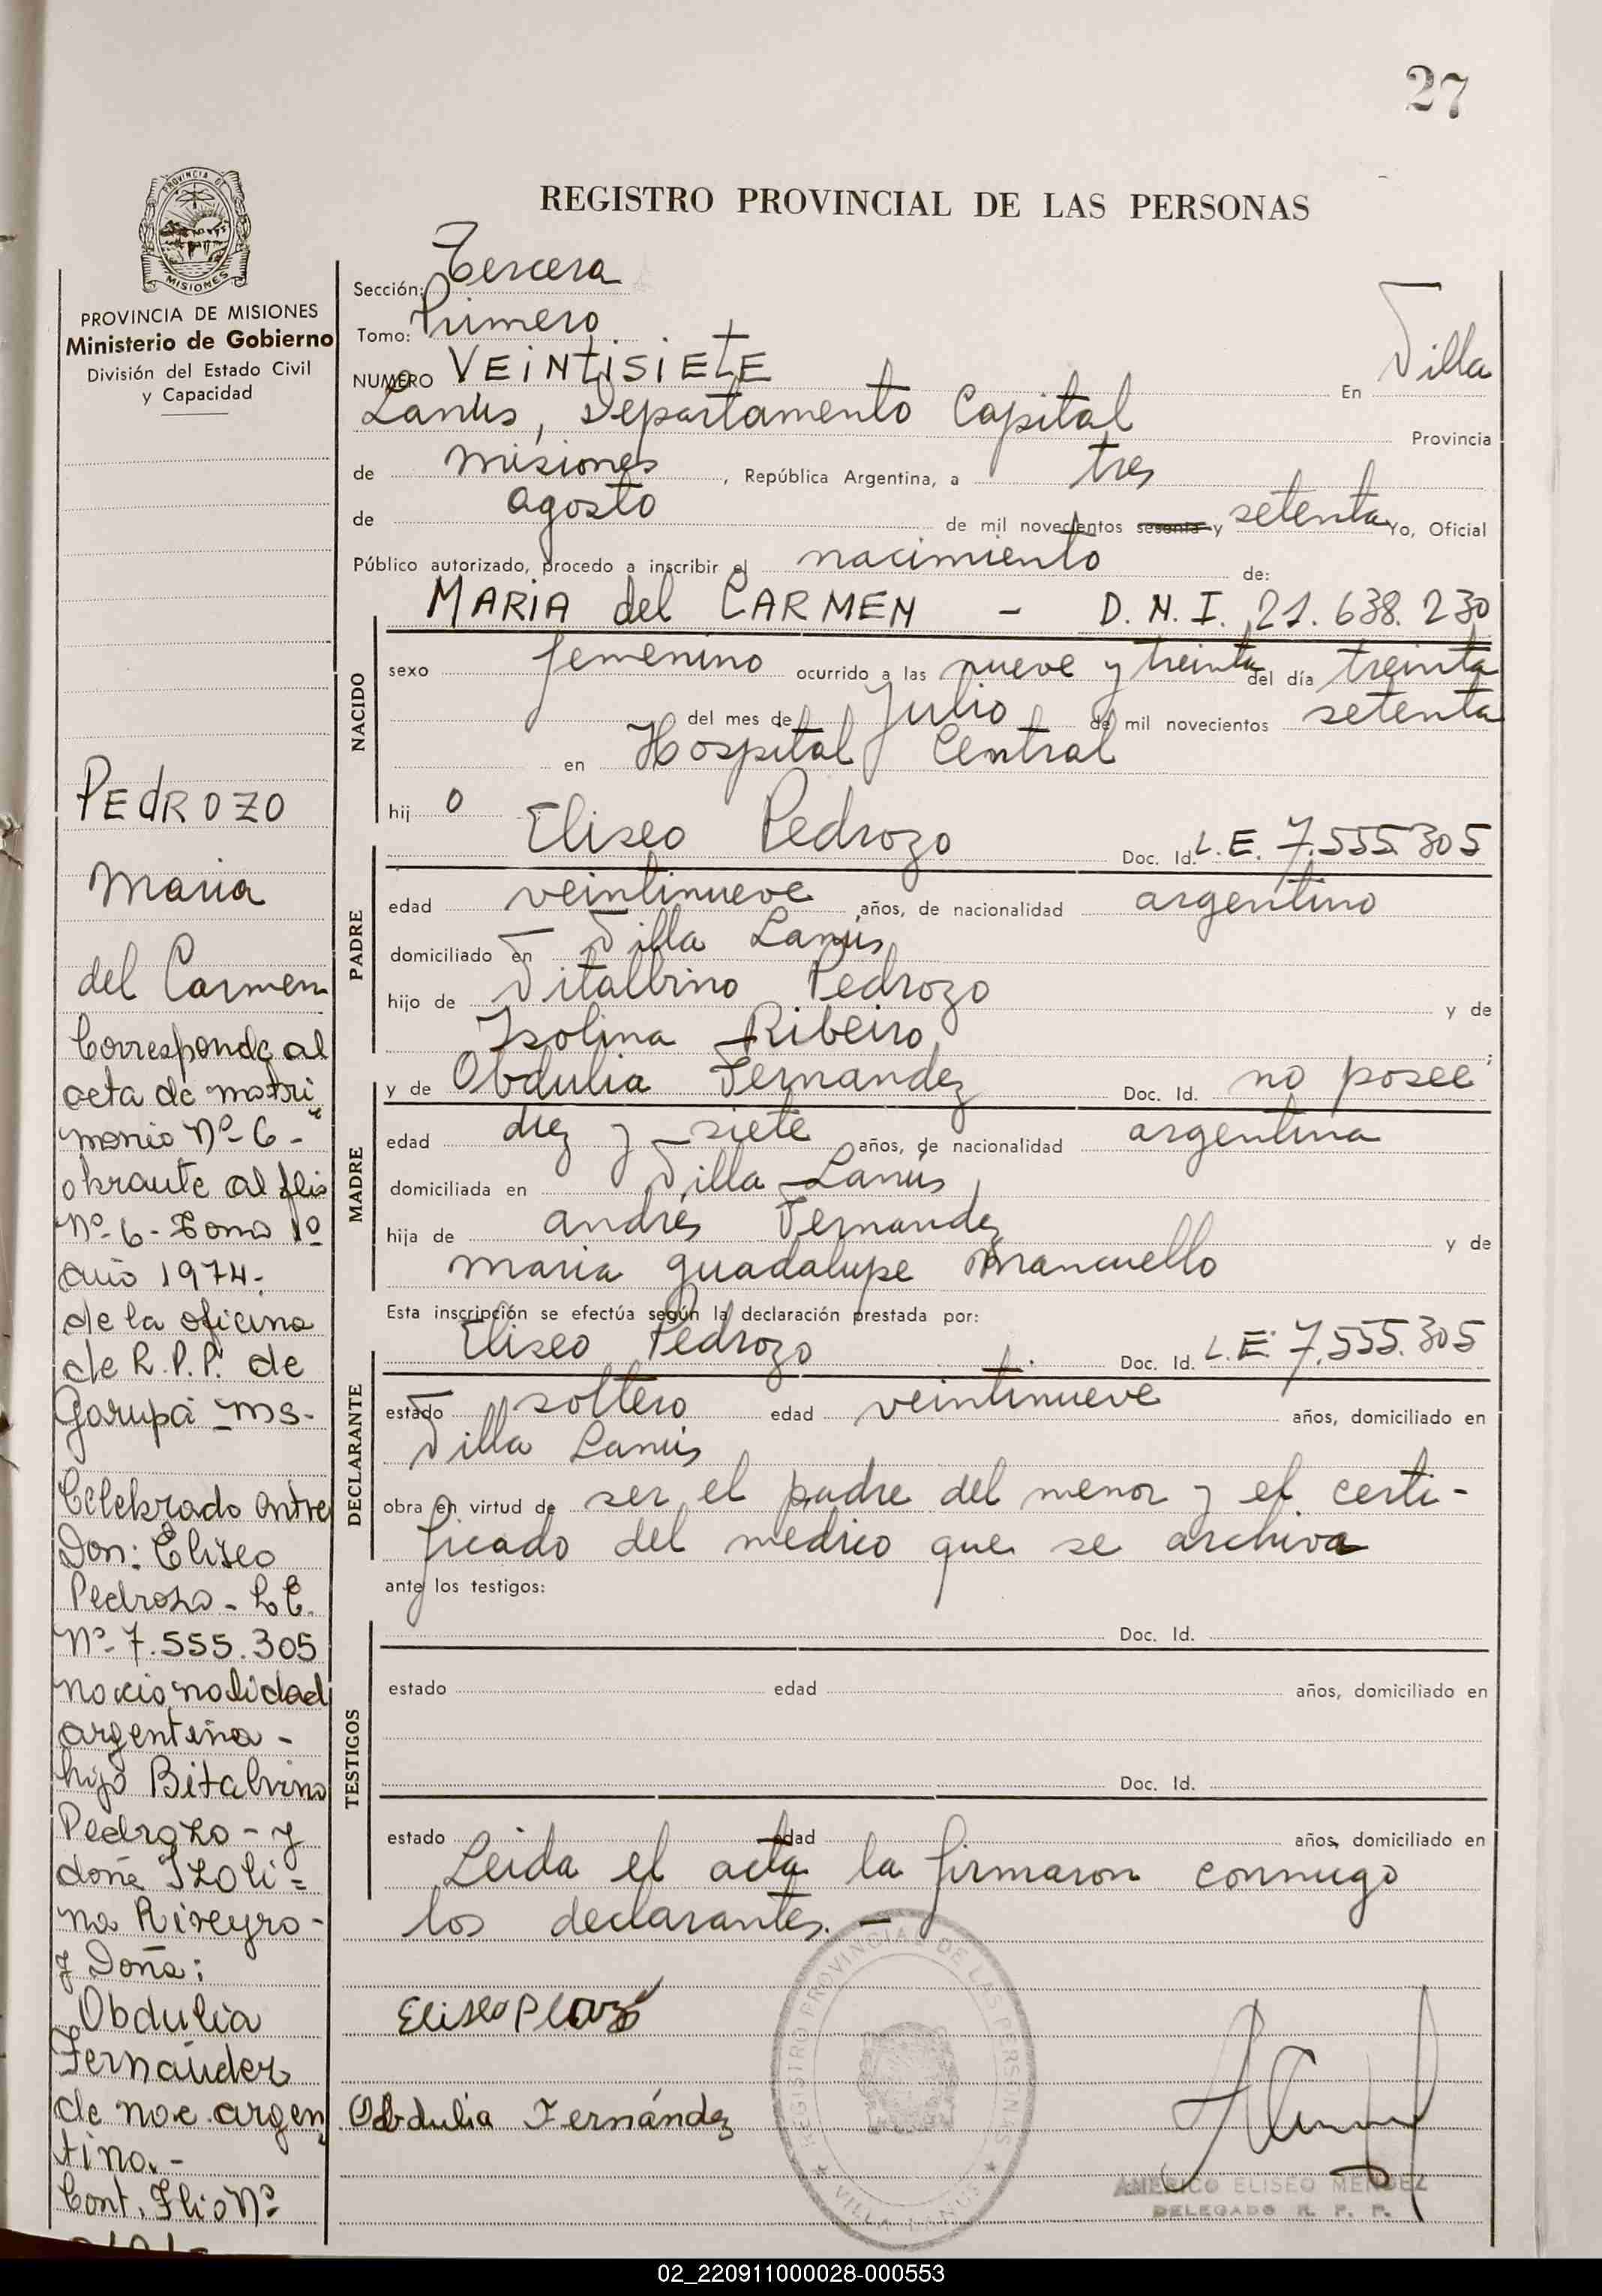 27
PROVINCIA DE
MISIONES
REGISTRO PROVINCIAL DE LAS PERSONAS
PROVINCIA DE MISIONES
Ministerio de Gobierno
División del Estado Civil
y Capacidad
Sección: Tercera
Tomo: Primero
NUMERO VEINTISIETE En Villa
Lanús, Departamento Capital Provincia
de Misiones, República Argentina, a tres
de agosto de mil novecientos sesenta y setenta Yo, Oficial
Público autorizado, procedo a inscribir el nacimiento de:
MARIA del CARMEN - D.N.I. 21.638.230
NACIDO
sexo femenino ocurrido a las nueve y treinta del día treinta
del mes de Julio de mil novecientos setenta
en Hospital Central
hij o
PADRE
Eliseo Pedrozo Doc. Id. L.E. 7.555.305
edad veintinueve años, de nacionalidad argentino
domiciliado en Villa Lanús
hijo de Vitalbino Pedrozo y de
Isolina Ribeiro;
MADRE
y de Obdulia Fernandez Doc. Id. no posee
edad diez y siete años, de nacionalidad argentina
domiciliada en Villa Lanús
hija de andrés Fernandez y de
maria guadalupe Mancuello
Esta inscripción se efectúa según la declaración prestada por:
DECLARANTE
Eliseo Pedrozo Doc. Id. L.E. 7.555.305
estado soltero edad veintinueve años, domiciliado en
Villa Lanús
obra en virtud de ser el padre del menor y el certi-
ficado del medico que se archiva
ante los testigos:
TESTIGOS
Doc. Id.
estado edad años, domiciliado en
Doc. Id.
estado edad años, domiciliado en
Leida el acta la firmaron conmigo
los declarantes. -
Obdulia Fernández
REGISTRO PROVINCIAL DE LAS PERSONAS
VILLA LANUS
AMERICO ELISEO MENDEZ
DELEGADO R. P. P.
PEdROZO
Maria
del Carmen
Corresponde al
acta de matri
monio Nº 6 -
obrante al flio
Nº 6 - Tomo 1º
año 1974.
de la oficina
de R.P.P. de
Garupá - Ms.
Celebrado entre
Don: Eliseo
Pedrozo - L.E.
Nº 7.555.305
nacionalidad
argentina -
hijo Bitalvino
Pedrozo - y
doña Izoli=
na Riveyro -
y Doña:
Obdulia
Fernández
de nac. argen
tina. -
Cont. Flio Nº
02_220911000028-000553